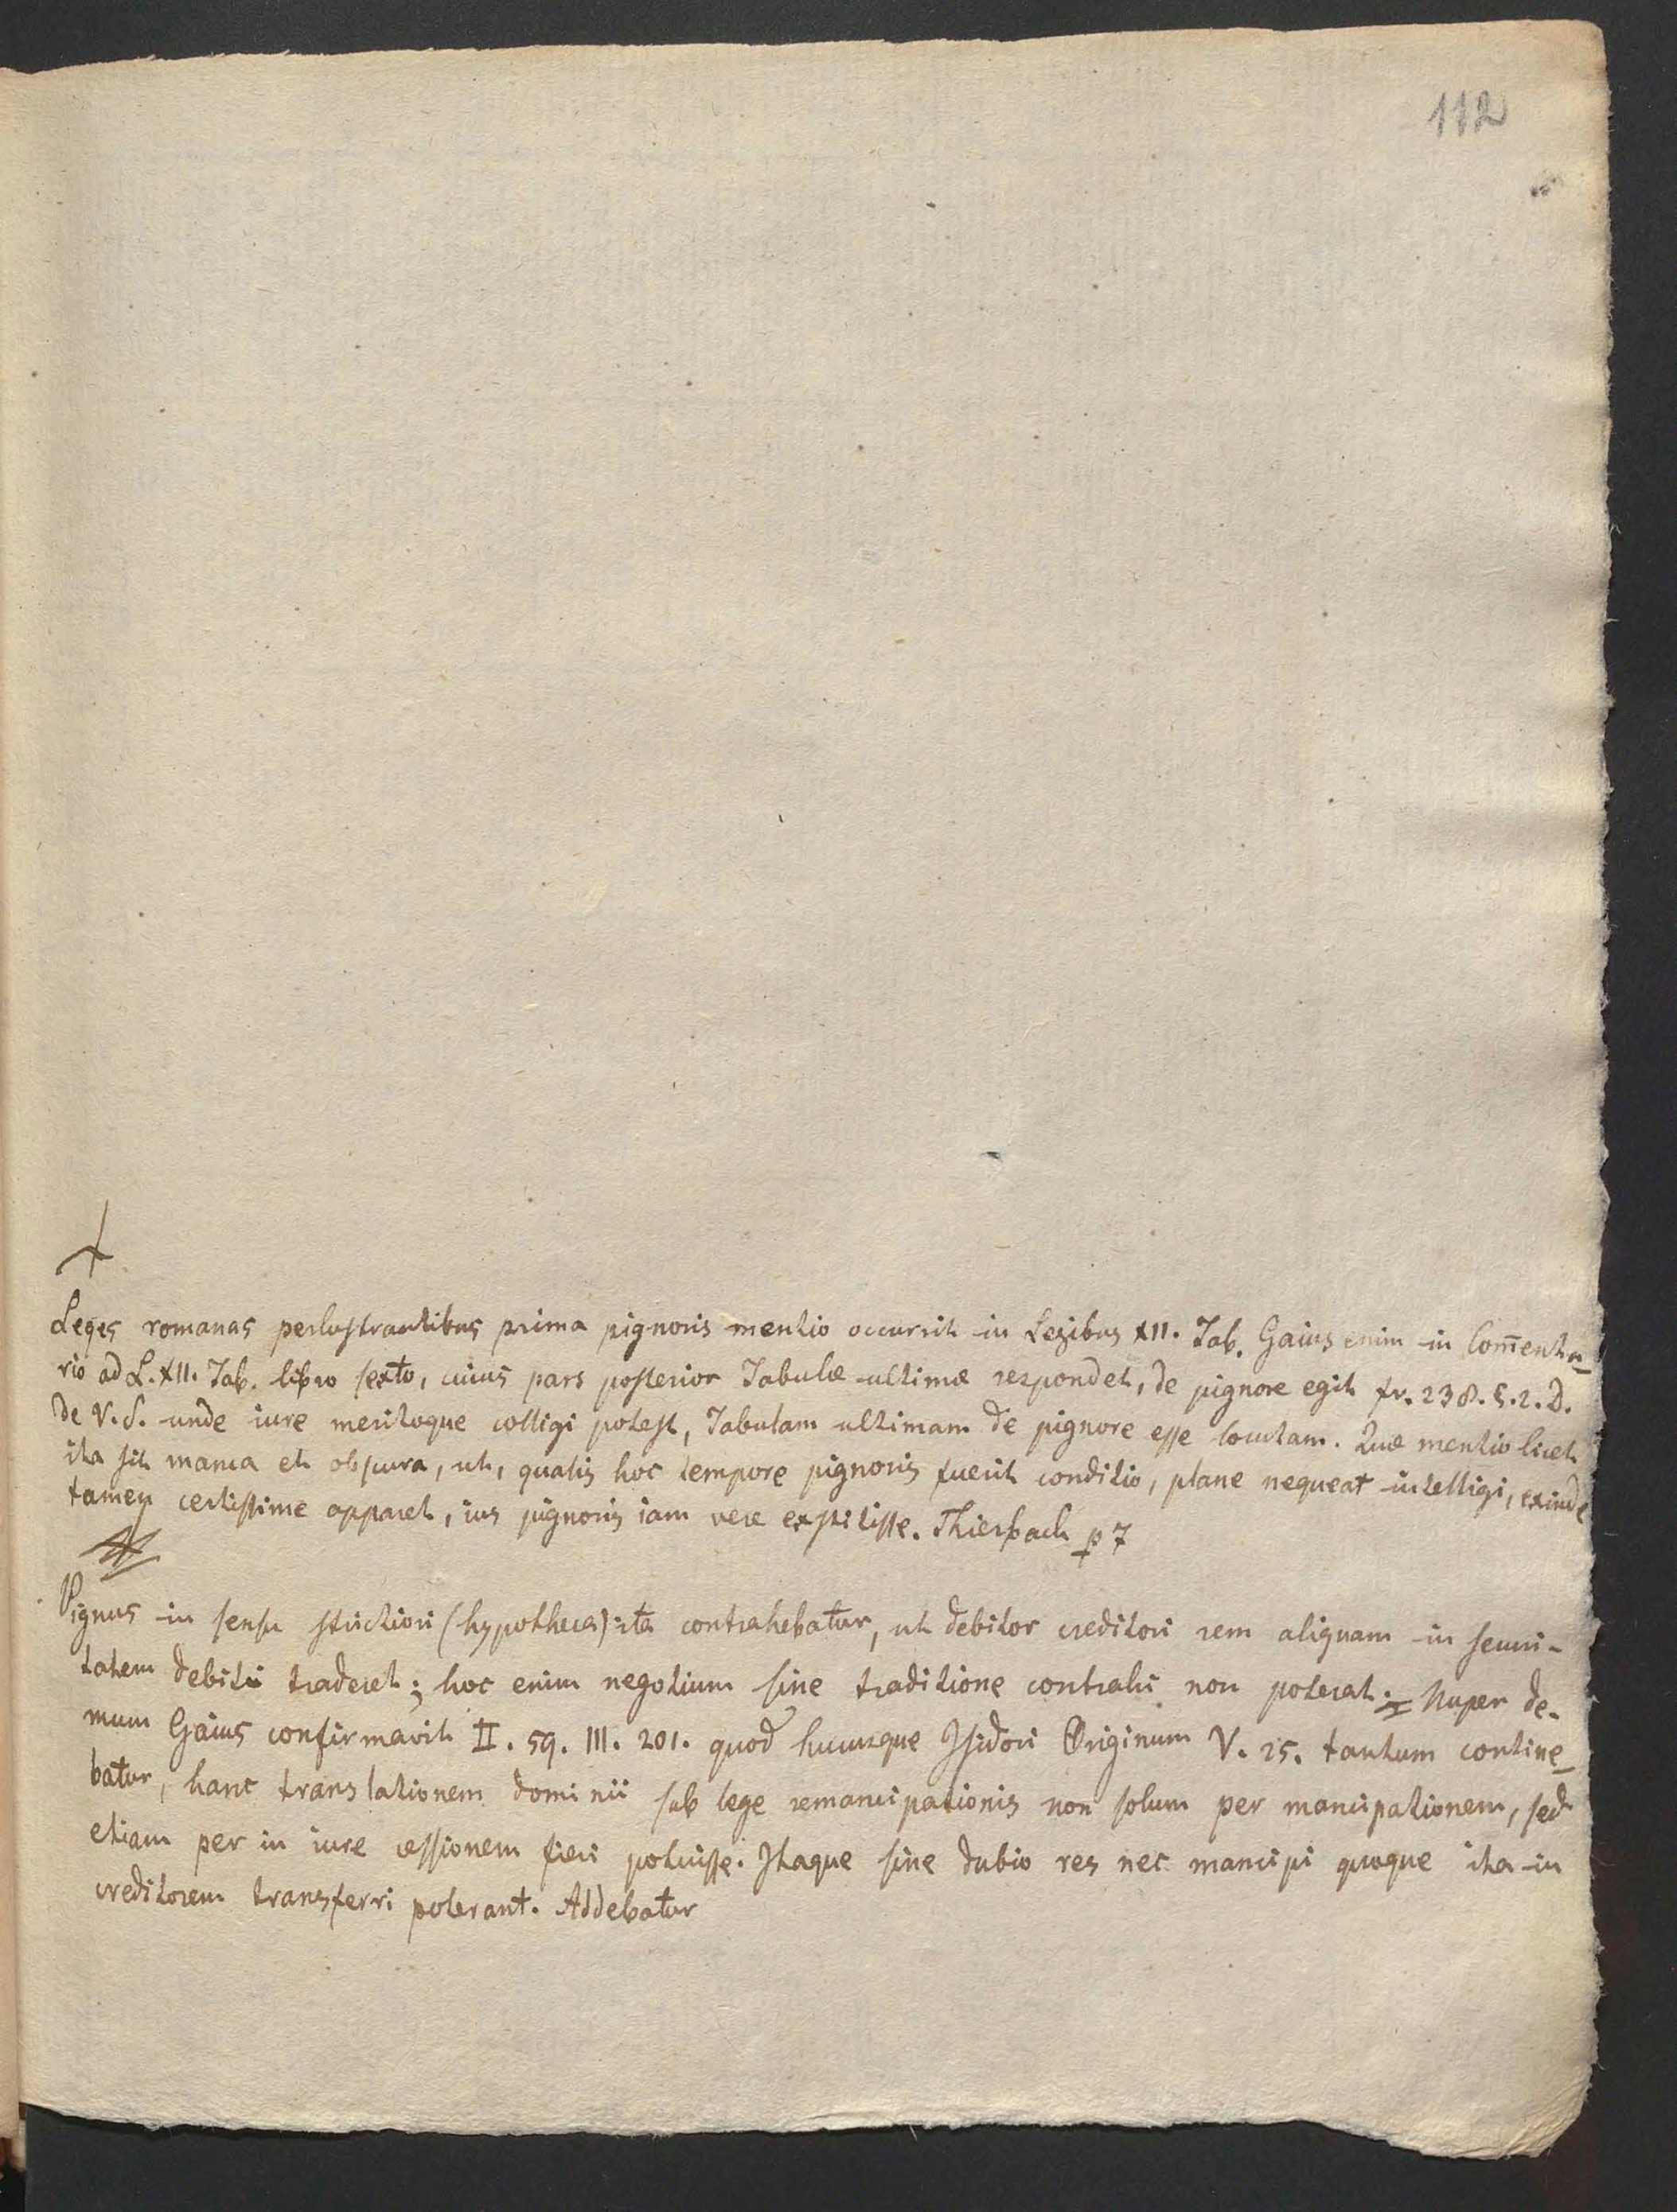 112
Leges romanas perlustrantibus prima pignoris mentio occurrit in Legibus XII. Tab. Gaius enim in Com̄enta-
rio ad L. XII. Tab. libro sexto, cuius pars posterior Tabulæ ultimæ respondet, de pignore egit fr. 238. §. 2. D.
de V. S. unde iure meritoque colligi potest, Tabulam ultimam de pignore esse locutam. Quæ mentio licet
ita sit manca et obscura, ut, qualis hoc tempore pignoris fuerit conditio, plane nequeat intelligi, exinde
tamen certissime apparet, ius pignoris iam vere exstitisse. Thierbach p 7
Pignus in sensu strictiori (hypotheca) ita contrahebatur, ut debitor creditori rem aliquam in securi-
tatem debiti traderet; hoc enim negotium sine traditione contrahi non poterat. Nuper de-
mum Gaius confirmavit II. 59. III. 201. quod hucusque Isidori Originum V. 25. tantum contine-
batur, hanc translationem dominii sub lege remancipationis non solum per mancipationem, sed
etiam per in iure cessionem fieri potuisse. Itaque sine dubio res nec mancipi quoque ita in
creditorem transferri poterant. Addebatur